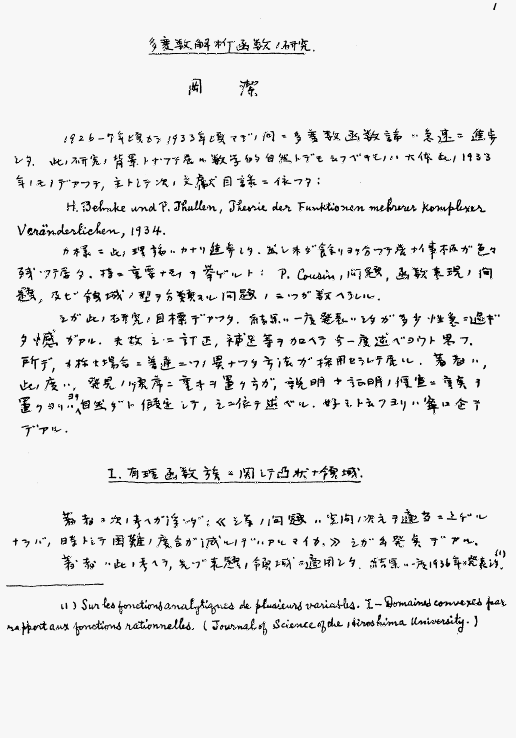 1
多変数解析函数ノ研究.
岡 潔
1926–7年頃カラ1933年頃マデノ間ニ多変数函数論ハ急速ニ進歩
シタ. 此ノ研究ノ背景トナッテ居ル数学的自然トデモ云フベキモノハ大体此ノ1933
年ノモノデアッテ, 主トシテ次ノ文献目録ニ依ツタ:
H. Behnke und P. Thullen, Theorie der Funktionen mehrerer komplexer
Veränderlichen, 1934.
カ様ニ此ノ理論ハカナリ進歩シタ. 然シ未ダ餘リヨク分ッテ居ナイ事柄ガ色々
残ッテ居タ. 特ニ重要ナモノヲ挙ゲルト: P. Cousin ノ問題, 函数表現ノ問
題, 及ビ領域ノ型ヲ分類スル問題ノ三ツガ数ヘラレル.
之ガ此ノ研究ノ目標デアッタ. 結果ハ一度発表シタガ多少性急ニ過ギ
タ感ガアル. 夫故之ニ訂正, 補足等ヲ加ヘテ今一度述ベヨウト思フ.
所デ, 斯様ナ場合ニ普通二ツノ異ナッタ方法ガ採用セラレテ居ル. 著者ハ,
此ノ度ハ, 発見ノ順序ニ重キヲ置ク方ガ, 説明ナリ証明ノ便宜ニ重キヲ
置クヨリハヨリ自然ダト信ジテ, 之ニ依テ述ベル. 好ミト云フヨリハ寧ロ企テ
デアル.
I. 有理函数族ニ関シテ凸状ナ領域.
著者ニ次ノ考ヘガ浮ンダ: 《之等ノ問題ハ空間ノ次元ヲ適当ニ上ゲル
ナラバ, 時トシテ困難ノ度合ガ減ルノデハアルマイカ.》 之ガ発矣デアル.
著者ハ此ノ考ヘヲ, 先ヅ表題ノ領域ニ適用シタ. 結果ハ一度1936年ニ発表シタ(1)
(1) Sur les fonctions analytiques de plusieurs variables. I – Domaines convexes par
rapport aux fonctions rationnelles. (Journal of Science of the Hiroshima University.)